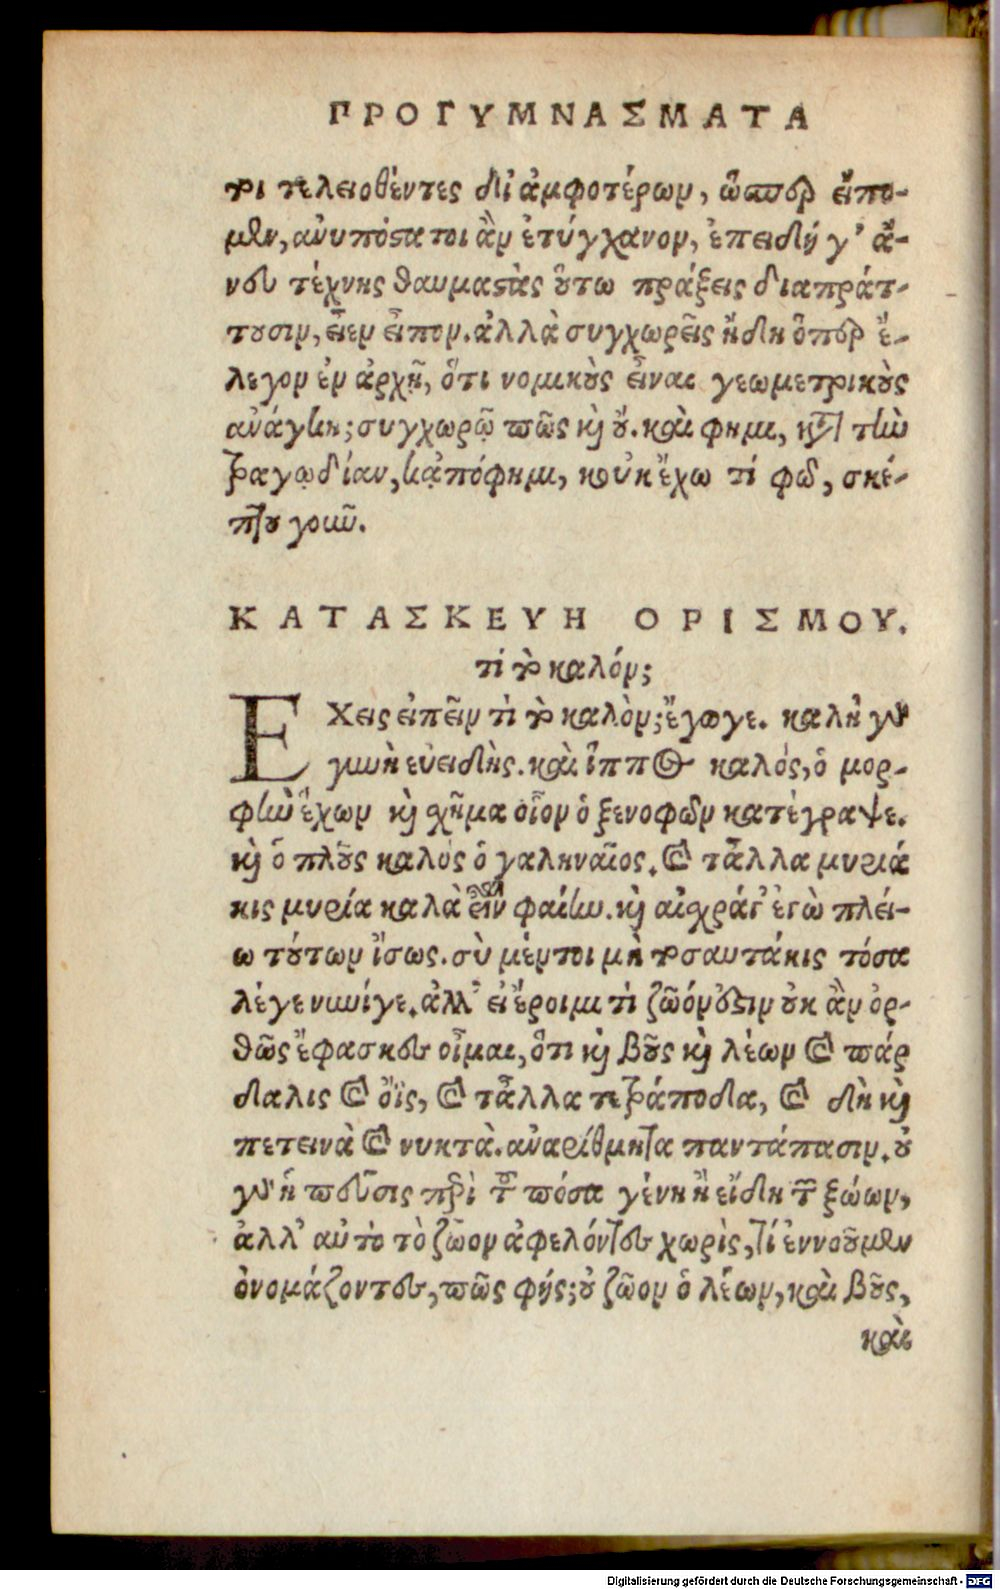 ΠΡΟΓΥΜΝΑΣΜΑΤΑ
τοι τελειοθέντες δι' ἀμφοτέρων, ὥσπερ εἴπο-
μεν, ἀνυπόστατοι ἂν ἐτύγχανον, ἐπειδή γ' ἄ-
νευ τέχνης θαυμαστὰς οὕτω πράξεις διαπράτ-
τουσιν, εἶεν εἶπον. ἀλλὰ συγχωρεῖς ἤδη ὅπερ ἔ-
λεγον ἐν ἀρχῇ, ὅτι νομικοὺς εἶναι γεωμετρικοὺς
ἀνάγκη; συγχωρῶ πῶς καὶ οὔ. καὶ φημι, κατὰ τὴν
τραγῳδίαν, κἀπόφημι, κοὐκ ἔχω τί φῶ, σκέ-
πτου γοῦν.
ΚΑΤΑΣΚΕΥΗ ΟΡΙΣΜΟΥ.
τί τὸ καλόν;
ΕΧεις εἰπεῖν τὶ τὸ καλὸν; ἔγωγε. καλὴ γὰρ
γυνὴ εὐειδὴς. καὶ ἵππος καλός, ὁ μορ-
φὴν ἔχων καὶ σχῆμα οἷον ὁ ξενοφῶν κατέγραψε.
καὶ ὁ πλοῦς καλὸς ὁ γαληναῖος. καὶ τἆλλα μυριά
κις μυρία καλὰ εἶναι φαίην. καὶ αἰσχρά γ' ἐγὼ πλεί-
ω τούτων ἴσως. σὺ μέντοι μὴ τοσαυτάκις τόσα
λέγε νυνίγε. ἀλλ' εἰ ἔροιμι τὶ ζῶόν ἐστιν οὐκ ἂν ὀρ-
θῶς ἔφασκες οἶμαι, ὅτι καὶ βοῦς καὶ λέων καὶ πάρ
δαλις καὶ ὄϊς, καὶ τἆλλα τετράποδα, καὶ δὴ καὶ
πετεινὰ καὶ νυκτὰ. ἀναρίθμητα παντάπασιν. οὐ
γὰρ ἡ πεῦσις περὶ τοῦ πόσα γένη ἢ εἴδη τῶν ξώων,
ἀλλ' αὐτὸ τὸ ζῶον ἀφελόντες χωρὶς, τί ἐννοοῦμεν
ὀνομάζοντες, πῶς φής; οὐ ζῶον ὁ λέων, καὶ βοῦς,
καὶ
Digitalisierung gefördert durch die Deutsche Forschungsgemeinschaft - DFG